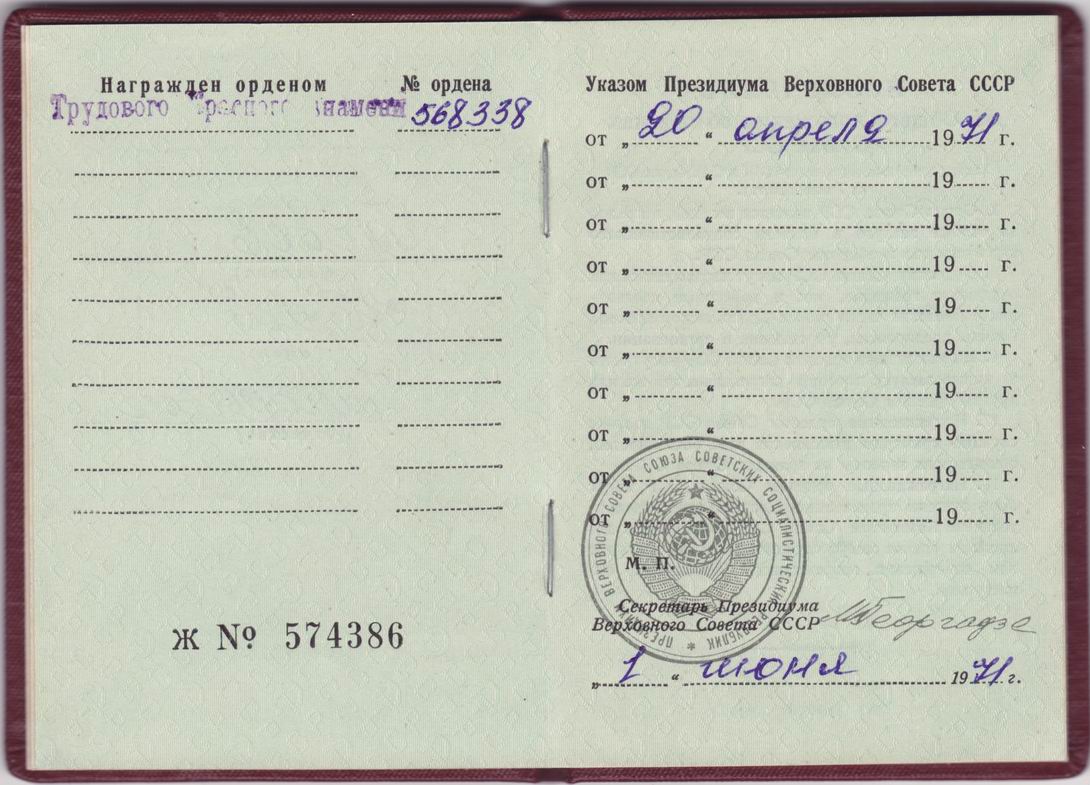 Награжден орденом
№ ордена
Трудового Красного Знамени
568338
Ж № 574386
Указом Президиума Верховного Совета СССР
от „ 20 “ апреля 1971 г.
от „ “ 19 г.
от „ “ 19 г.
от „ “ 19 г.
от „ “ 19 г.
от „ “ 19 г.
от „ “ 19 г.
от „ “ 19 г.
от „ “ 19 г.
от „ “ 19 г.
ПРЕЗИДИУМ ВЕРХОВНОГО СОВЕТА СОЮЗА СОВЕТСКИХ СОЦИАЛИСТИЧЕСКИХ РЕСПУБЛИК
М. П.
Секретарь Президиума
Верховного Совета СССР
МГеоргадзе
„ 1 “ июня 1971 г.